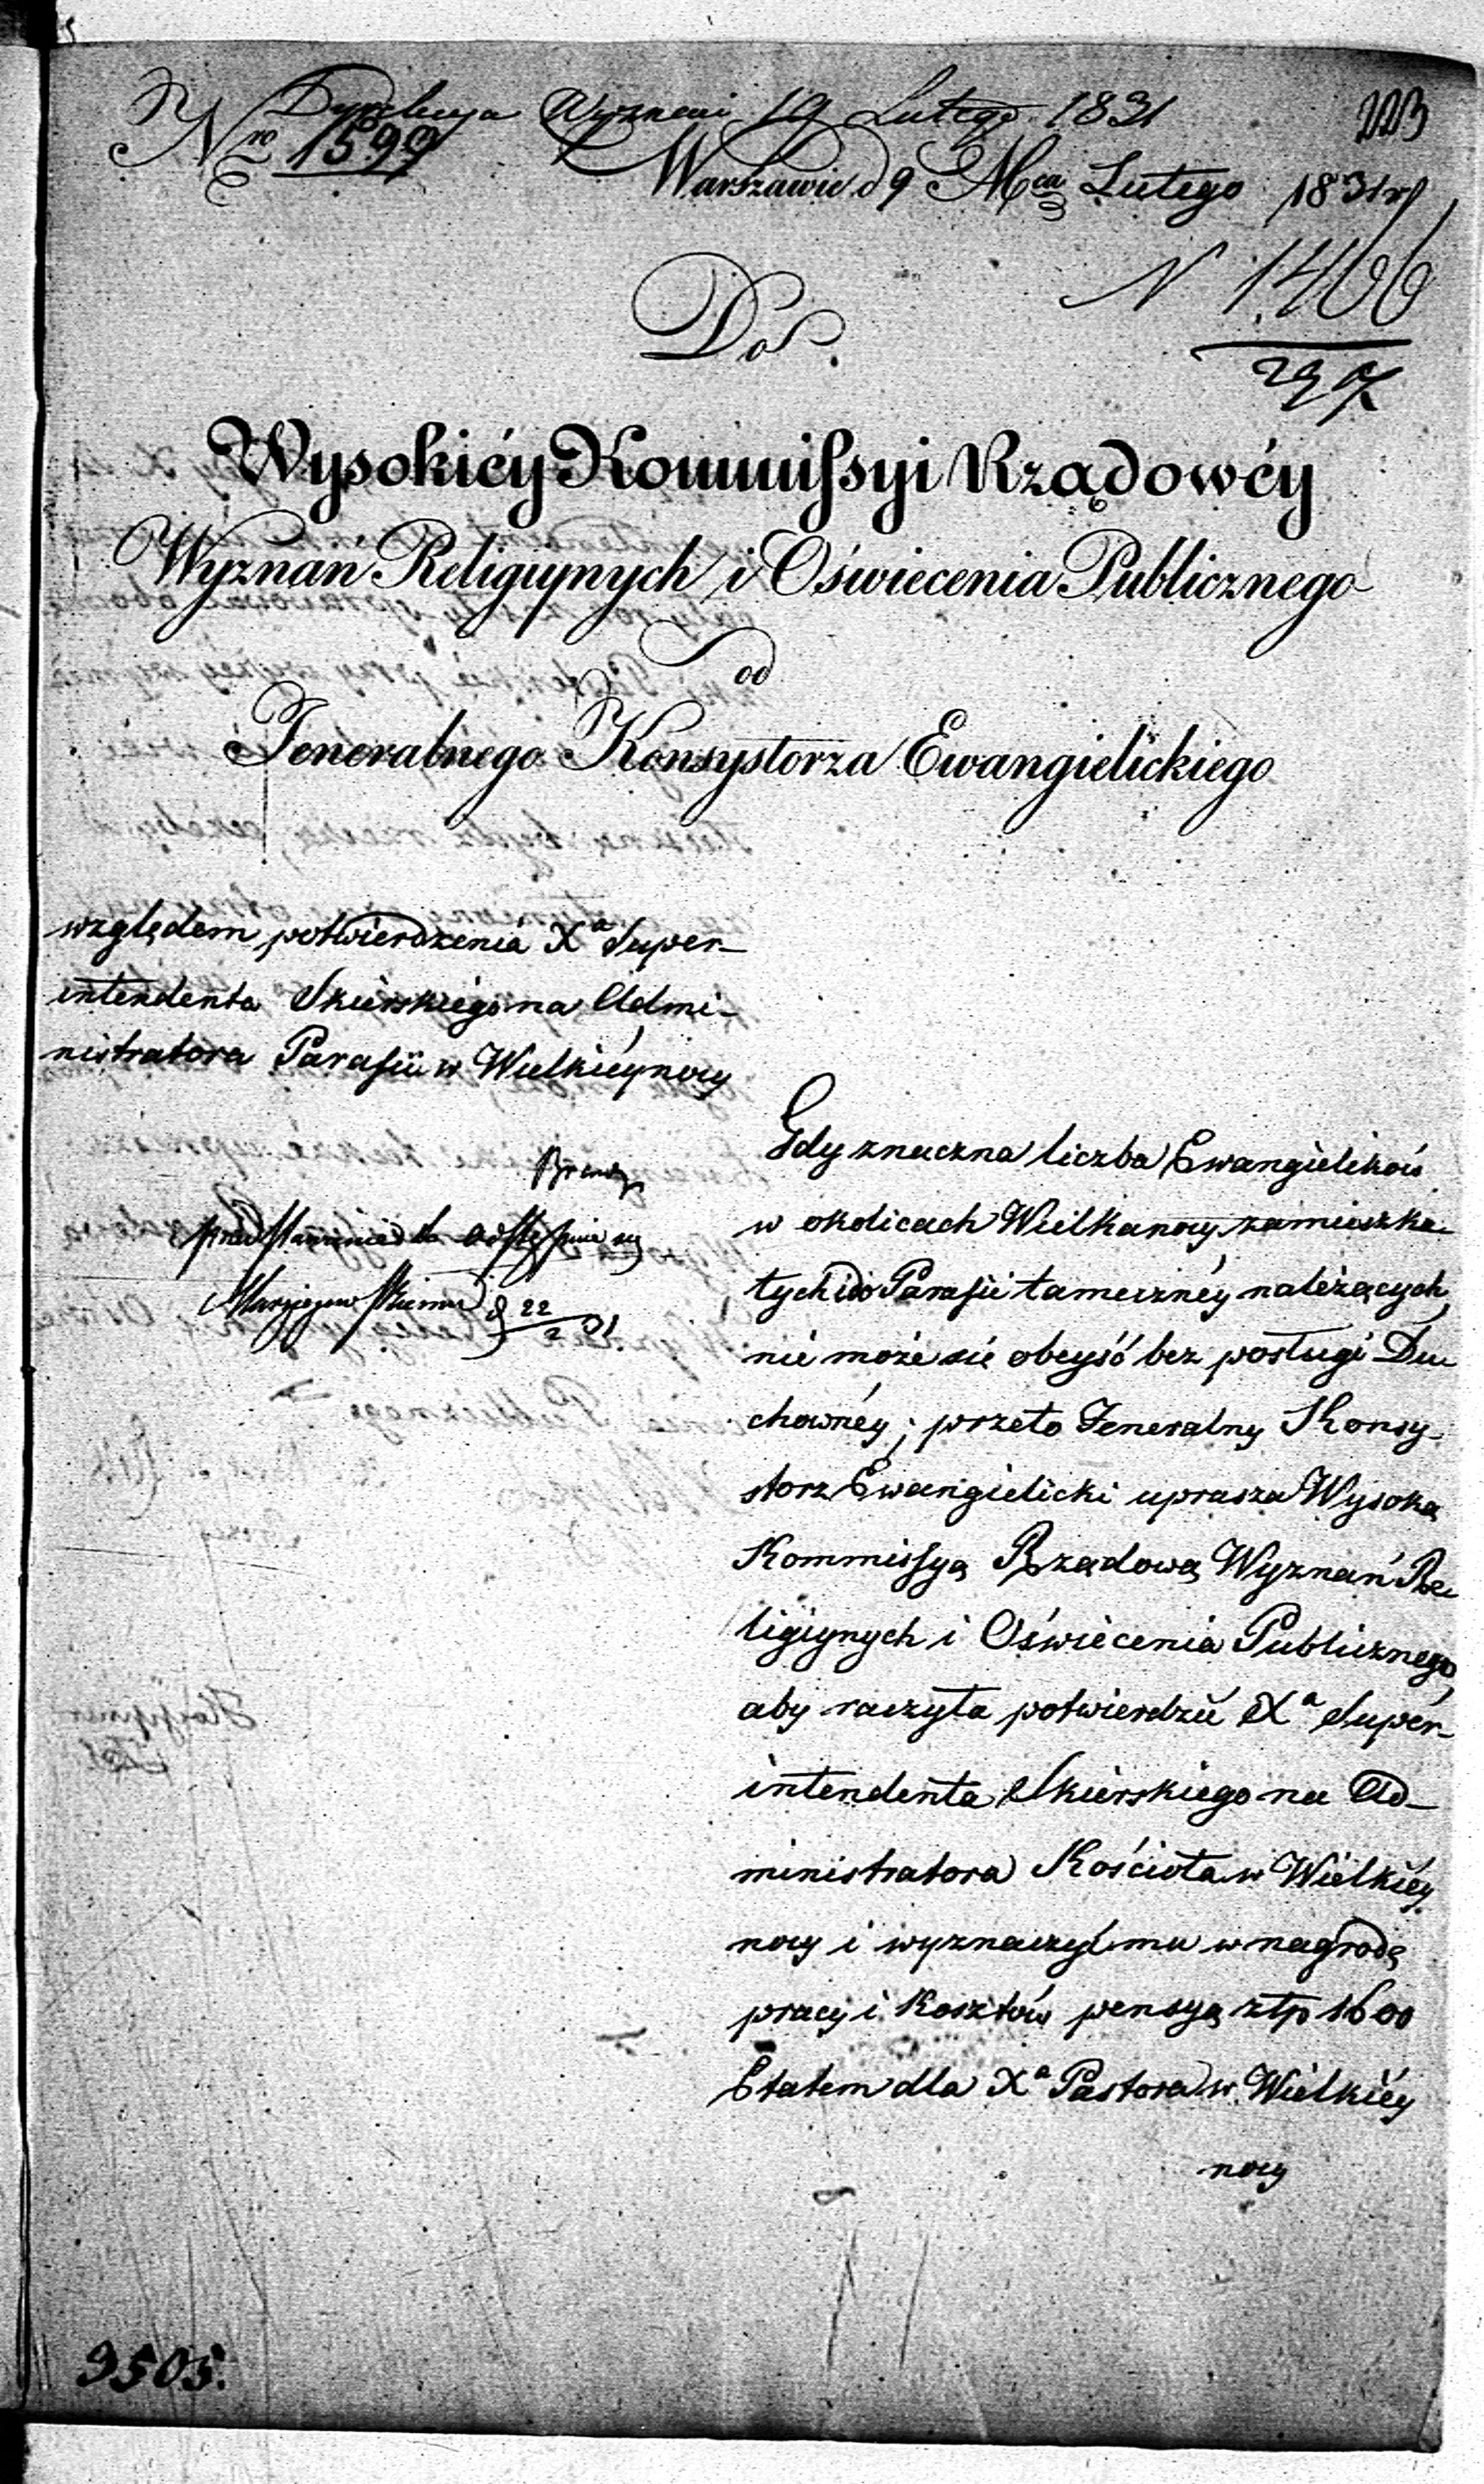 Dyrekcya Wyznań 19 Lutego 1831
223
Nro 1599
Warszawie d 9 Mca Lutego 1831 r
N 1406
297
Do
Wysokiéy Kommißyi Rządowéy
Wyznań Religiynych i Oświecenia Publicznego
od
Jeneralnego Konsystorza Ewangielickiego
względem potwierdzenia Xa Super-
intendenta Skierskiego na Admi-
nistratora Parafii w Wielkiéynocy
d 22/2 31
Gdy znaczna liczba Ewangielików
w okolicach Wielkanocy zamieszka-
łych i do Parafii tamecznéy należących,
nie może się obeyść bez posługi Du-
chownéy; przeto Jeneralny Konsy-
storz Ewangielicki uprasza Wysoką
Kommißyą Rządową Wyznań Re-
ligiynych i Oświecenia Publicznego,
aby raczyła potwierdzić Xa Super-
intendenta Skierskiego na Ad-
ministratora Kościoła w Wielkiéy
nocy i wyznaczyć mu w nagrodę
pracy i kosztów pensyą złp 1600
Etatem dla Xa Pastora w Wielkiéy
nocy
9505.